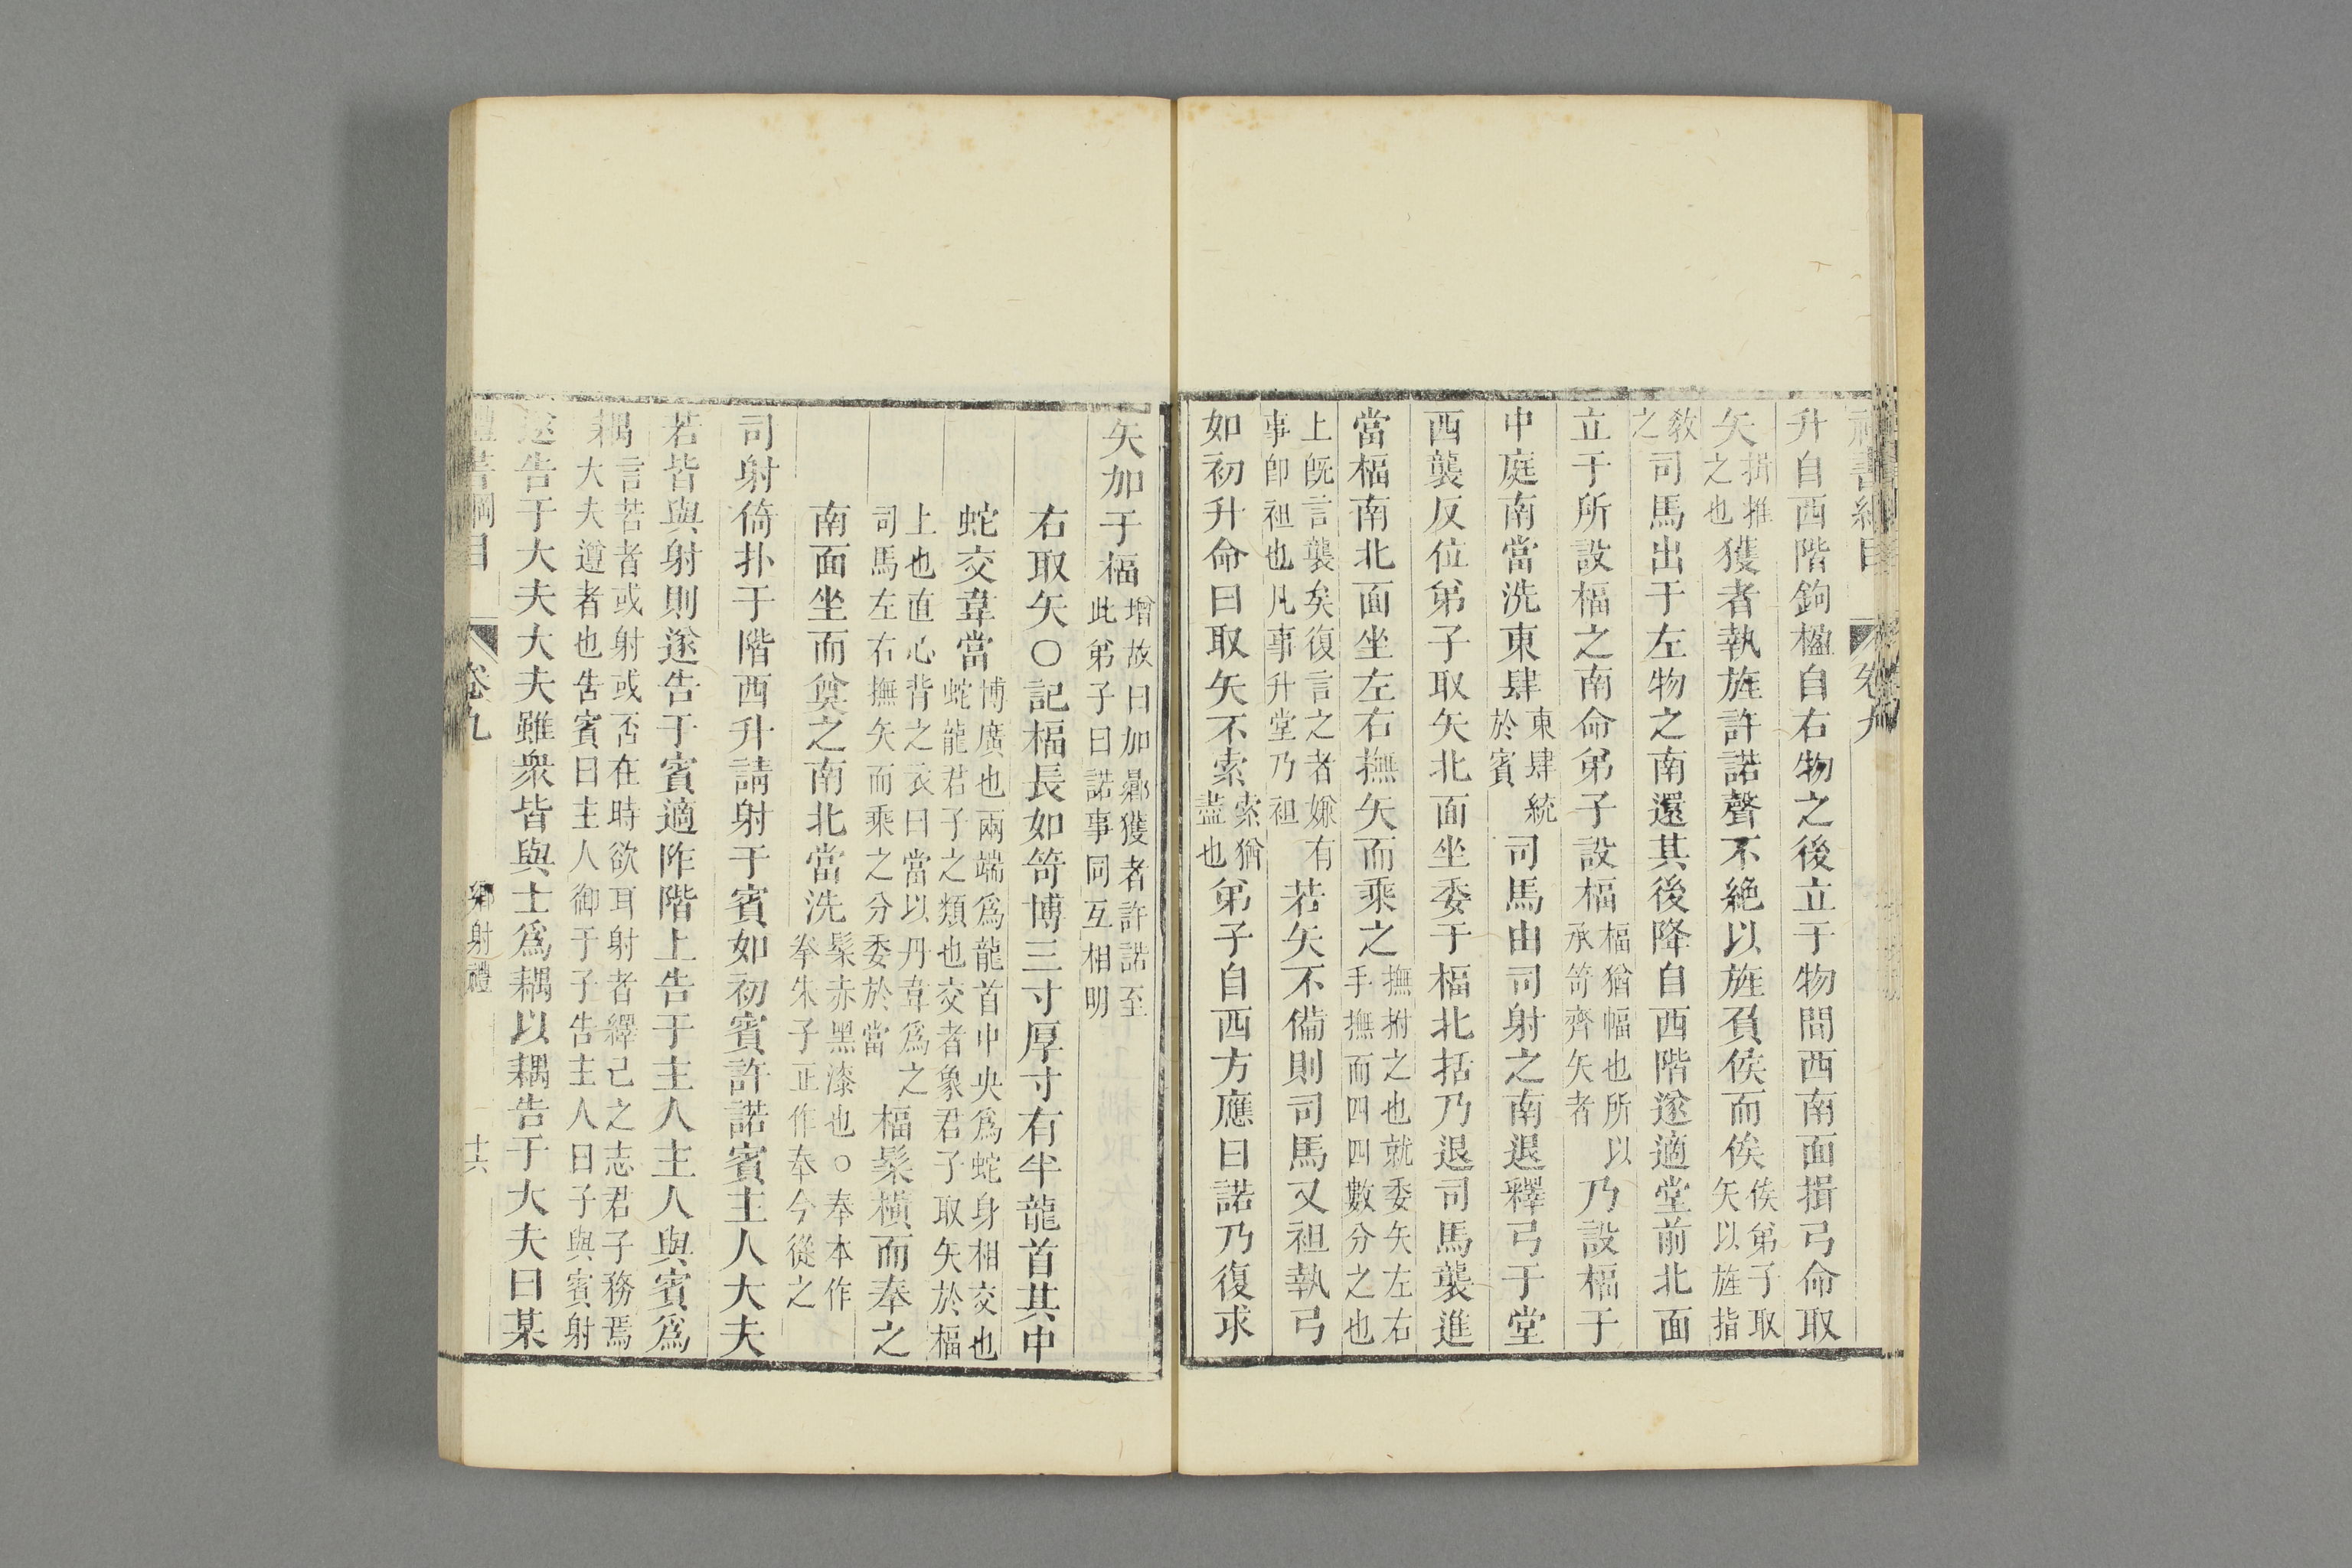 升自西階鉤楹自右物之後立于物間西南面揖弓命取
矢揖推之也獲者執旌許諾聲不絶以旌負侯而俟俟弟子取矢以旌指
教之司馬出于左物之南還其後降自西階遂適堂前北面
立于所設楅之南命弟子設楅楅猶幅也所以承笴齊矢者乃設楅于
中庭南當洗東肆東肆統於賓司馬由司射之南退釋弓于堂
西襲反位弟子取矢北面坐委于楅北括乃退司馬襲進
當楅南北面坐左右撫矢而乘之撫拊之也就委矢左右手撫而四四數分之也
上既言襲矣復言之者嫌有事卽袒也凡事升堂乃袒若矢不備則司馬又袒執弓
如初升命曰取矢不索索猶盡也弟子自西方應曰諾乃復求
矢加于楅增故曰加曏獲者許諾至此弟子曰諾事同互相明
右取矢○記楅長如笴博三寸厚寸有半龍首其中
蛇交韋當博廣也兩端爲龍首中央爲蛇身相交也蛇龍君子之類也交者象君子取矢於楅
上也直心背之衣曰當以丹韋爲之司馬左右撫矢而乘之分委於當楅髤橫而奉之
南面坐而奠之南北當洗髤赤黑漆也○奉本作拳朱子正作奉今從之
司射倚扑于階西升請射于賓如初賓許諾賓主人大夫
若皆與射則遂告于賓適阼階上告于主人主人與賓爲
耦言若者或射或否在時欲耳射者繹己之志君子務焉大夫遵者也告賓曰主人御于子告主人曰子與賓射
遂告于大夫大夫雖衆皆與士爲耦以耦告于大夫曰某
卷九
鄉射禮
十六